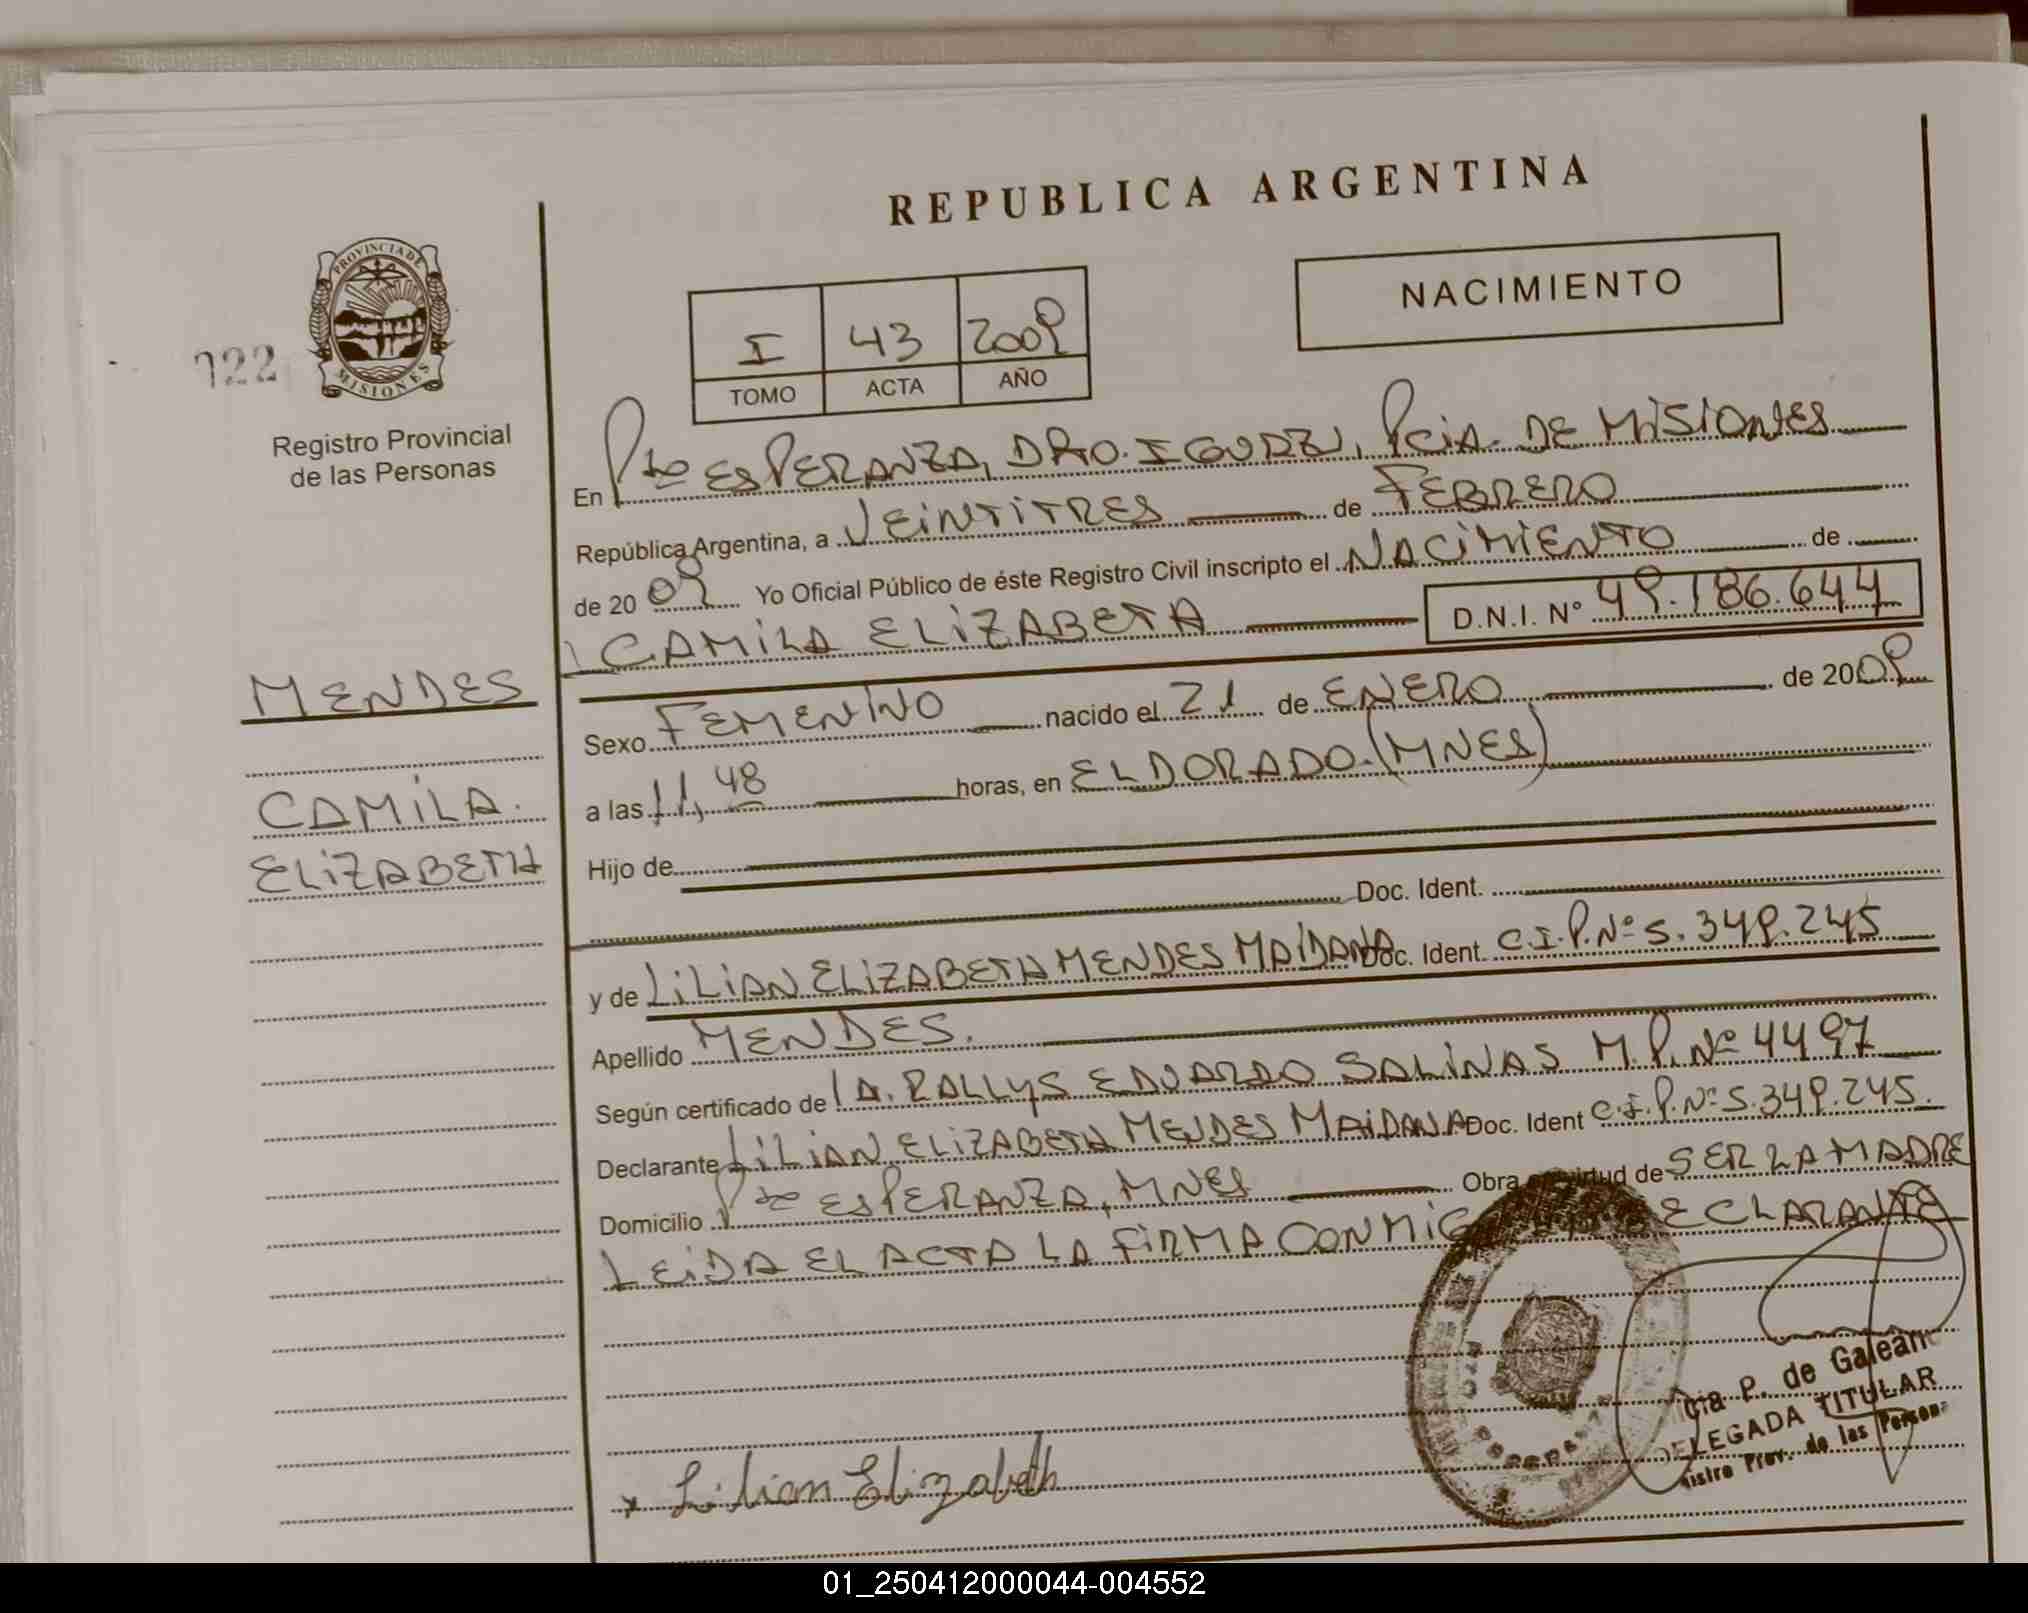 REPUBLICA ARGENTINA
NACIMIENTO
I 43 2009
TOMO ACTA AÑO
PROVINCIA DE
MISIONES
122
Registro Provincial
de las Personas
MENDES
CAMILA.
ELIZABETH
En Pto ESPERANZA, DPTO. IGUAZU, Pcia. DE MISIONES
República Argentina, a VEINTITRES de FEBRERO
de 2009 Yo Oficial Público de éste Registro Civil inscripto el NACIMIENTO de
CAMILA ELIZABETH D.N.I. N° 49.186.644
Sexo FEMENINO nacido el 21 de ENERO de 2009
a las 11,48 horas, en ELDORADO.(MNES)
Hijo de
Doc. Ident.
y de LILIAN ELIZABETH MENDES MAIDANA Doc. Ident. C.I.P.N° 5.349.245
Apellido MENDES.
Según certificado de RALLYS EDUARDO SALINAS M.P.N° 4497
Declarante LILIAN ELIZABETH MENDES MAIDANA Doc. Ident C.I.P.N° 5.349.245.
Domicilio Pto ESPERANZA, MNES Obra en virtud de SER LA MADRE
LEIDA EL ACTA LA FIRMA CONMIGO DECLARANTE
P. de Galeano
DELEGADA TITULAR
Prov. de las Person
x Lilian Elizabeth
01_250412000044-004552